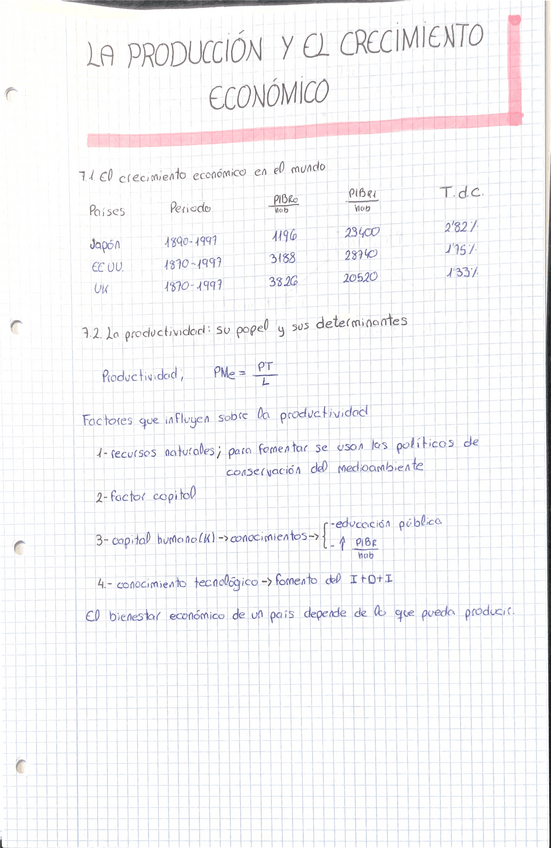 LA PRODUCCIÓN Y EL CRECIMIENTO
ECONÓMICO
7.1 El crecimiento económico en el mundo
Países Periodo PIBR0/hab PIBR1/hab T.d.C.
Japón 1890-1997 1196 23400 2'82%
EEUU. 1870-1997 3188 28740 1'75%
UK 1870-1997 3826 20520 1'33%
7.2. La productividad: su papel y sus determinantes
Productividad, PMe = PT/L
Factores que influyen sobre la productividad
1- recursos naturales; para fomentar se usan las políticas de
conservación del medioambiente
2- factor capital
3- capital humano (K) -> conocimientos -> { - educación pública
- ↑ PIBR/hab
4.- conocimiento tecnológico -> fomento del I+D+I
El bienestar económico de un país depende de lo que pueda producir.